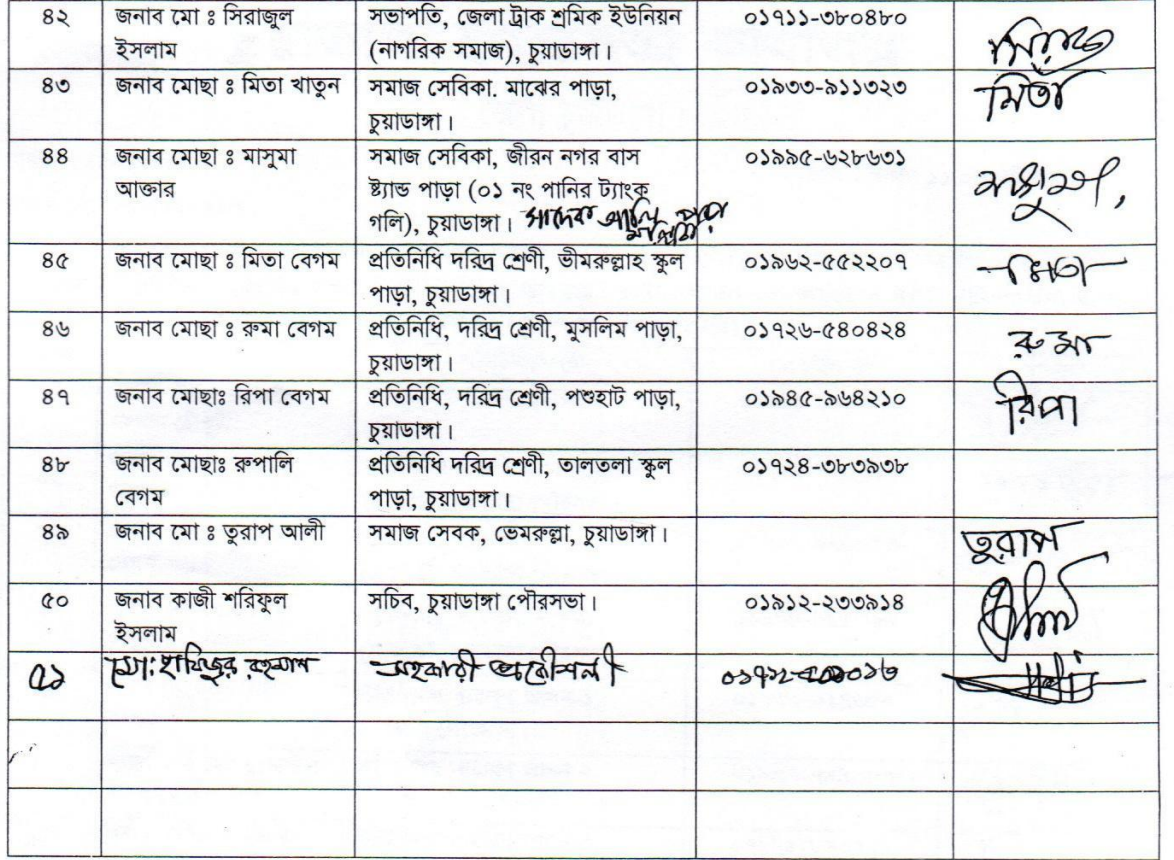 ৪২ জনাব মো ঃ সিরাজুল ইসলাম সভাপতি, জেলা ট্রাক শ্রমিক ইউনিয়ন (নাগরিক সমাজ), চুয়াডাঙ্গা। ০১৭১১-৩৮০৪৮০ সিরাজ
৪৩ জনাব মোছা ঃ মিতা খাতুন সমাজ সেবিকা. মাঝের পাড়া, চুয়াডাঙ্গা। ০১৯৩৩-৯১১৩২৩ মিতা
৪৪ জনাব মোছা ঃ মাসুমা আক্তার সমাজ সেবিকা, জীরন নগর বাস ষ্ট্যান্ড পাড়া (০১ নং পানির ট্যাংক গলি), চুয়াডাঙ্গা। সাদেক আলি ০১৯৯৫-৬২৮৬৩১
৪৫ জনাব মোছা ঃ মিতা বেগম প্রতিনিধি দরিদ্র শ্রেণী, ভীমরুল্লাহ স্কুল পাড়া, চুয়াডাঙ্গা। ০১৯৬২-৫৫২২০৭ মিতা
৪৬ জনাব মোছা ঃ রুমা বেগম প্রতিনিধি, দরিদ্র শ্রেণী, মুসলিম পাড়া, চুয়াডাঙ্গা। ০১৭২৬-৫৪০৪২৪ রুমা
৪৭ জনাব মোছাঃ রিপা বেগম প্রতিনিধি, দরিদ্র শ্রেণী, পশুহাট পাড়া, চুয়াডাঙ্গা। ০১৯৪৫-৯৬৪২১০ রিপা
৪৮ জনাব মোছাঃ রুপালি বেগম প্রতিনিধি দরিদ্র শ্রেণী, তালতলা স্কুল পাড়া, চুয়াডাঙ্গা। ০১৭২৪-৩৮৩৯৩৮
৪৯ জনাব মো ঃ তুরাপ আলী সমাজ সেবক, ভেমরুল্লা, চুয়াডাঙ্গা। তুরাপ
৫০ জনাব কাজী শরিফুল ইসলাম সচিব, চুয়াডাঙ্গা পৌরসভা। ০১৯১২-২৩৩৯১৪
৫১ মো: হাফিজুর রহমান সহকারী প্রকৌশলী